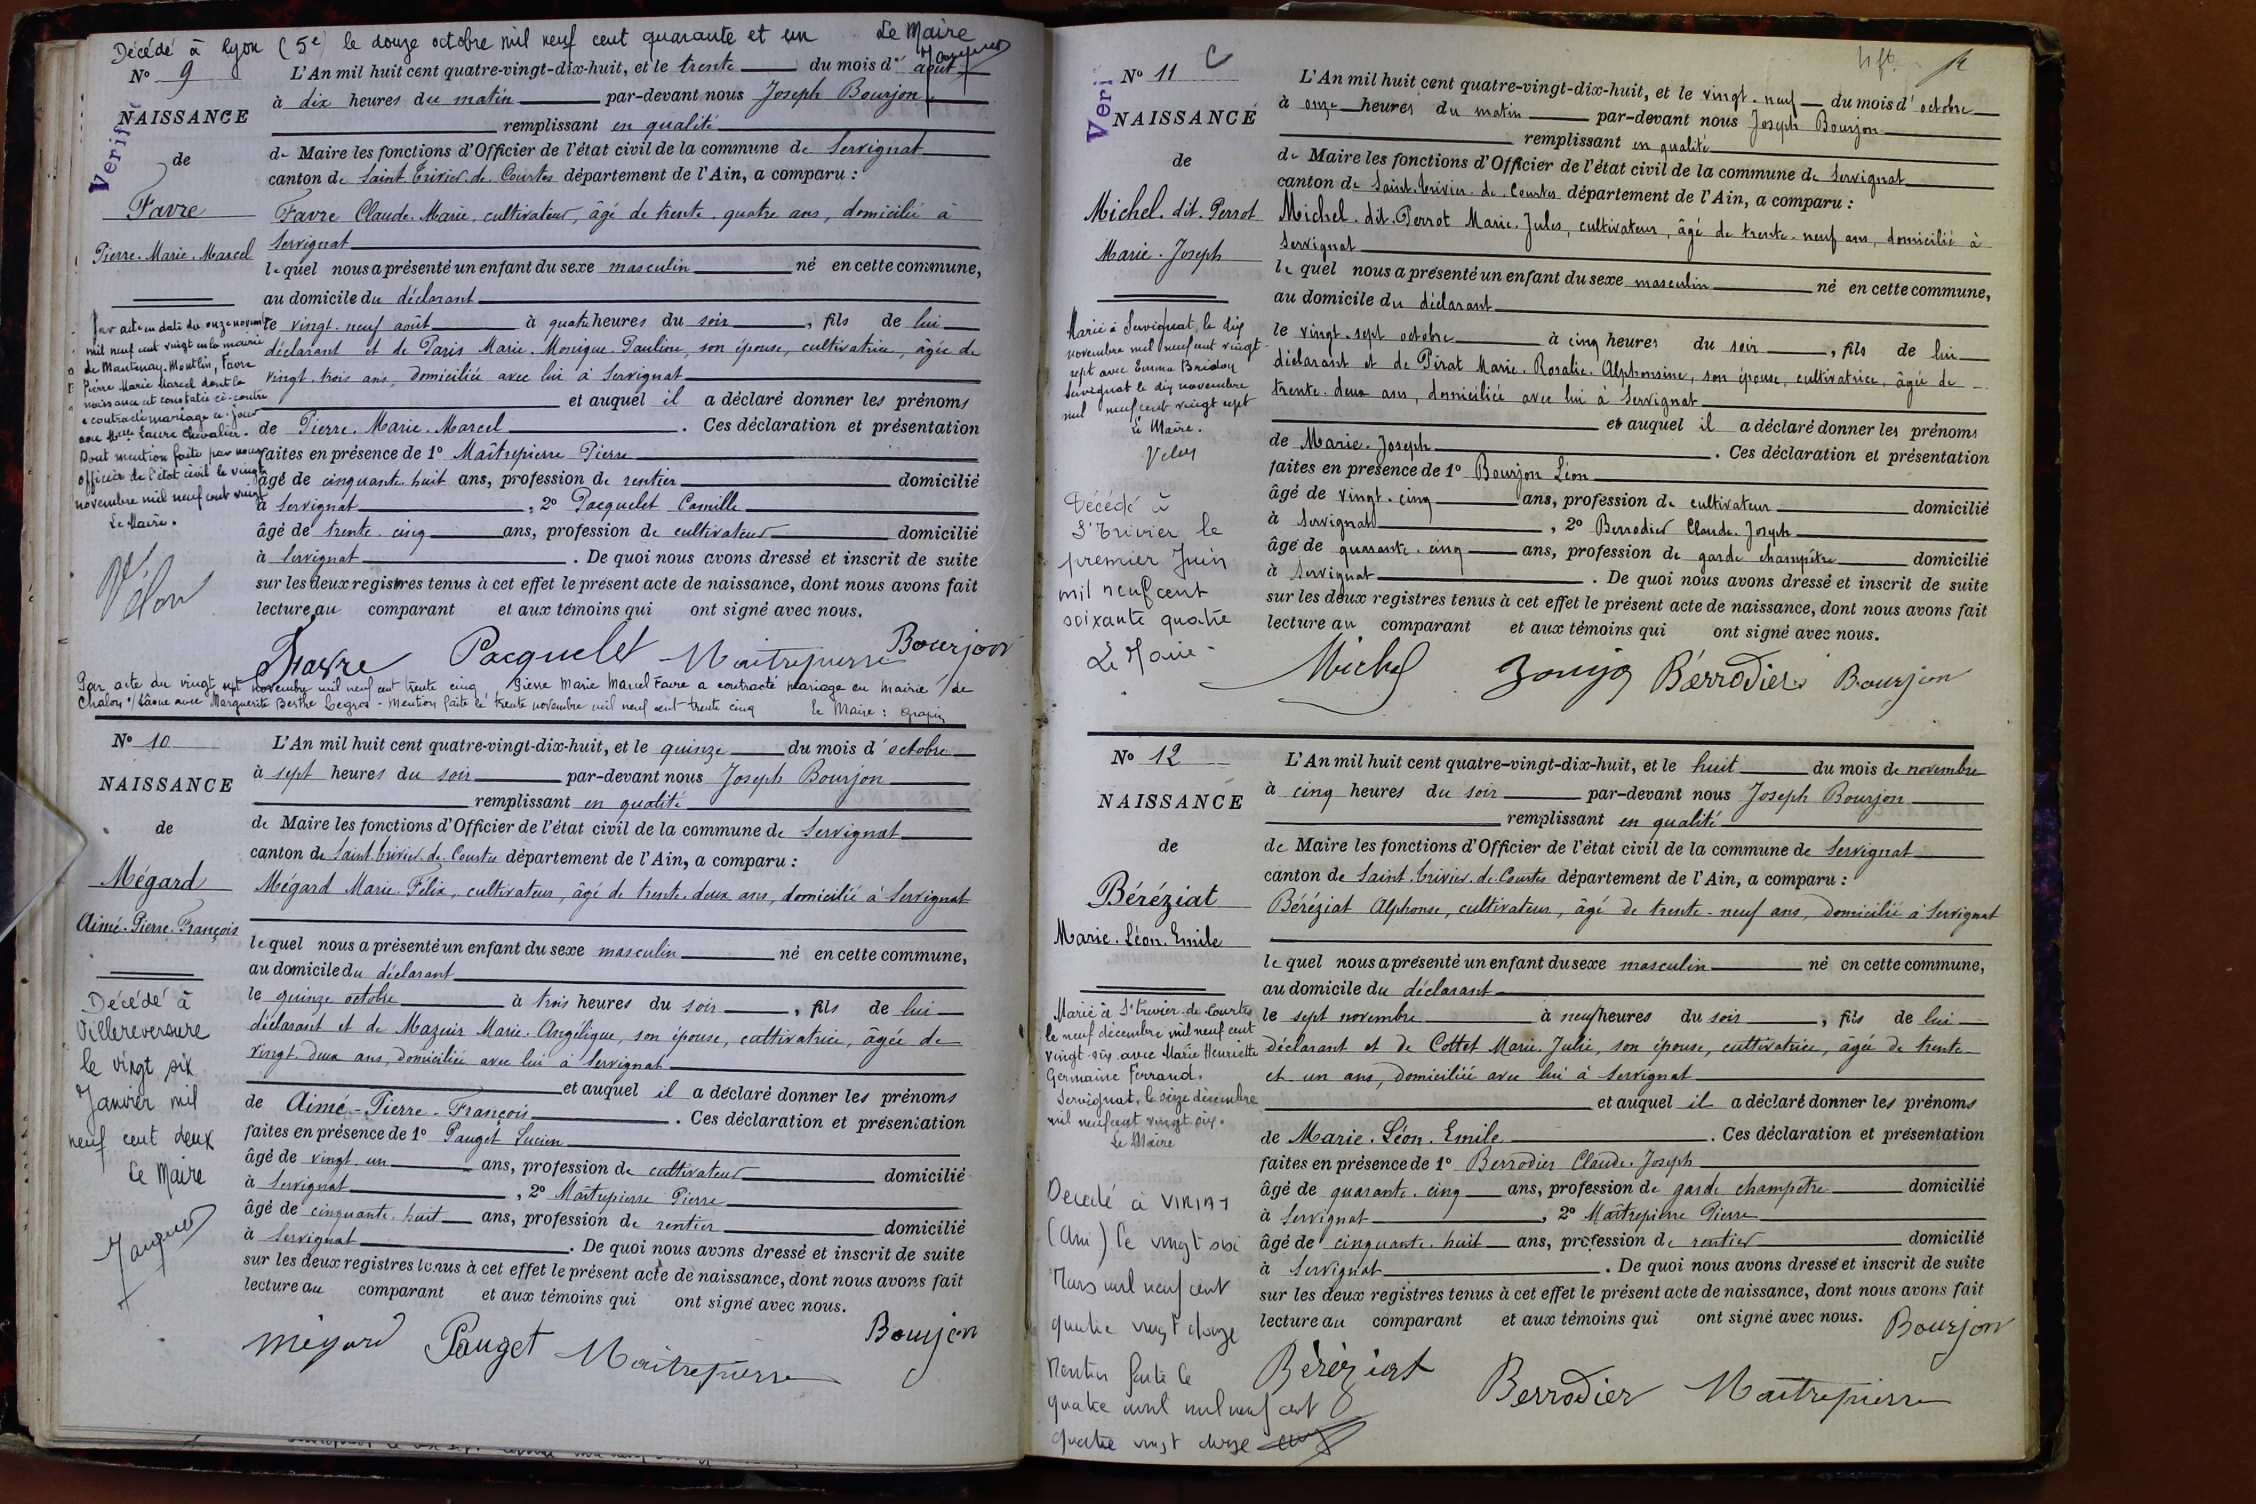 Décédé à Lyon (5e) le douze octobre mil neuf cent quarante et un Le Maire
N° 9
NAISSANCE
de
Favre
Pierre. Marie. Marcel
Verif
L'An mil huit cent quatre-vingt-dix-huit, et le trente du mois d' août
à dix heures du matin par-devant nous Joseph Bourjon
remplissant en qualité
de Maire les fonctions d'Officier de l'état civil de la commune de Servignat
canton de Saint. Trivier. de. Courtes département de l'Ain, a comparu :
Favre Claude. Marie, cultivateur, âgé de trente. quatre ans, domicilié à
Servignat
lequel nous a présenté un enfant du sexe masculin né en cette commune,
au domicile du déclarant
le vingt. neuf août à quatre heures du soir, fils de lui
déclarant et de Paris Marie. Monique. Pauline, son épouse, cultivatrice, âgée de
vingt. trois ans, domiciliée avec lui à Servignat
et auquel il a déclaré donner les prénoms
de Pierre. Marie. Marcel. Ces déclaration et présentation
faites en présence de 1° Maîtrepierre Pierre
âgé de cinquante. huit ans, profession de rentier domicilié
à Servignat, 2° Pacquelet Camille
âgé de trente. cinq ans, profession de cultivateur domicilié
à Servignat. De quoi nous avons dressé et inscrit de suite
sur les deux registres tenus à cet effet le présent acte de naissance, dont nous avons fait
lecture au comparant et aux témoins qui ont signé avec nous.
Par acte en date du onze novembre
mil neuf cent vingt en la mairie
de Mantenay. Montlin, Favre
Pierre Marie Marcel dont la
naissance est constatée ci-contre
a contracté mariage ce jour
avec Melle Laure Chevalier.
Dont mention faite par nous
officier de l'état civil le vingt
novembre mil neuf cent vingt
Le Maire.
Vélon
Favre Pacquelet Maitrepierre Bourjon
Par acte du vingt sept novembre mil neuf cent trente cinq Pierre Marie Marcel Favre a contracté mariage en mairie de
Chalon s/Saône avec Marguerite Berthe Legros - Mention faite le trente novembre mil neuf cent trente cinq Le Maire :
N° 10
NAISSANCE
de
Mégard
Aimé. Pierre. François
L'An mil huit cent quatre-vingt-dix-huit, et le quinze du mois d' octobre
à sept heures du soir par-devant nous Joseph Bourjon
remplissant en qualité
de Maire les fonctions d'Officier de l'état civil de la commune de Servignat
canton de Saint. trivier. de. Courtes département de l'Ain, a comparu :
Mégard Marie. Félix, cultivateur, âgé de trente. deux ans, domicilié à Servignat
lequel nous a présenté un enfant du sexe masculin né en cette commune,
au domicile du déclarant
le quinze octobre à trois heures du soir, fils de lui
déclarant et de Mazuir Marie. Angélique, son épouse, cultivatrice, âgée de
vingt. deux ans, domiciliée avec lui à Servignat
et auquel il a déclaré donner les prénoms
de Aimé - Pierre - François. Ces déclaration et présentation
faites en présence de 1° Pauget Lucien
âgé de vingt. un ans, profession de cultivateur domicilié
à Servignat, 2° Maîtrepierre Pierre
âgé de cinquante. huit ans, profession de rentier domicilié
à Servignat. De quoi nous avons dressé et inscrit de suite
sur les deux registres tenus à cet effet le présent acte de naissance, dont nous avons fait
lecture au comparant et aux témoins qui ont signé avec nous.
Décédé à
Villereversure
le vingt six
Janvier mil
neuf cent deux
Le Maire
Mégard Pauget Maitrepierre Bourjon
N° 11
NAISSANCE
de
Michel. dit. Perrot
Marie. Joseph
Veri
L'An mil huit cent quatre-vingt-dix-huit, et le vingt. neuf du mois d' octobre
à onze heures du matin par-devant nous Joseph Bourjon
remplissant en qualité
de Maire les fonctions d'Officier de l'état civil de la commune de Servignat
canton de Saint. trivier. de. Courtes département de l'Ain, a comparu :
Michel. dit. Perrot Marie. Jules, cultivateur, âgé de trente. neuf ans, domicilié à
Servignat
lequel nous a présenté un enfant du sexe masculin né en cette commune,
au domicile du déclarant
le vingt. sept octobre à cinq heures du soir, fils de lui
déclarant et de Pirat Marie. Rosalie. Alphonsine, son épouse, cultivatrice, âgée de
trente. deux ans, domiciliée avec lui à Servignat
et auquel il a déclaré donner les prénoms
de Marie. Joseph. Ces déclaration et présentation
faites en présence de 1° Bourjon Léon
âgé de vingt. cinq ans, profession de cultivateur domicilié
à Servignat, 2° Berrodier Claude. Joseph
âgé de quarante. cinq ans, profession de garde champêtre domicilié
à Servignat. De quoi nous avons dressé et inscrit de suite
sur les deux registres tenus à cet effet le présent acte de naissance, dont nous avons fait
lecture au comparant et aux témoins qui ont signé avec nous.
Marié à Servignat, le dix
novembre mil neuf cent vingt-
sept avec Emma Bridon
Servignat le dix novembre
mil neuf cent vingt sept
Le Maire.
Décédé à
St Trivier le
premier Juin
mil neuf cent
soixante quatre
Le Maire -
Michel Bourjon Berrodier Bourjon
N° 12
NAISSANCE
de
Béréziat
Marie. Léon. Emile
L'An mil huit cent quatre-vingt-dix-huit, et le huit du mois de novembre
à cinq heures du soir par-devant nous Joseph Bourjon
remplissant en qualité
de Maire les fonctions d'Officier de l'état civil de la commune de Servignat
canton de Saint. trivier. de. Courtes département de l'Ain, a comparu :
Béréziat Alphonse, cultivateur, âgé de trente - neuf ans, domicilié à Servignat
lequel nous a présenté un enfant du sexe masculin né en cette commune,
au domicile du déclarant
le sept novembre à neuf heures du soir, fils de lui
déclarant et de Cottet Marie. Julie, son épouse, cultivatrice, âgée de trente
et un ans, domiciliée avec lui à Servignat
et auquel il a déclaré donner les prénoms
de Marie. Léon. Emile. Ces déclaration et présentation
faites en présence de 1° Berrodier Claude. Joseph
âgé de quarante. cinq ans, profession de garde champêtre domicilié
à Servignat, 2° Maîtrepierre Pierre
âgé de cinquante. huit ans, profession de rentier domicilié
à Servignat. De quoi nous avons dressé et inscrit de suite
sur les deux registres tenus à cet effet le présent acte de naissance, dont nous avons fait
lecture au comparant et aux témoins qui ont signé avec nous.
Marié à St trivier. de. Courtes
le neuf décembre mil neuf cent
vingt-six avec Marie Henriette
Germaine Ferrand.
Servignat, le seize décembre
mil neuf cent vingt six.
Le Maire
Decedé à VIRIAT
(Ain) le vingt six
Mars mil neuf cent
quatre vingt douze
Mention faite le
quatre avril mil neuf cent
quatre vingt douze
Béréziat Berrodier Maitrepierre Bourjon